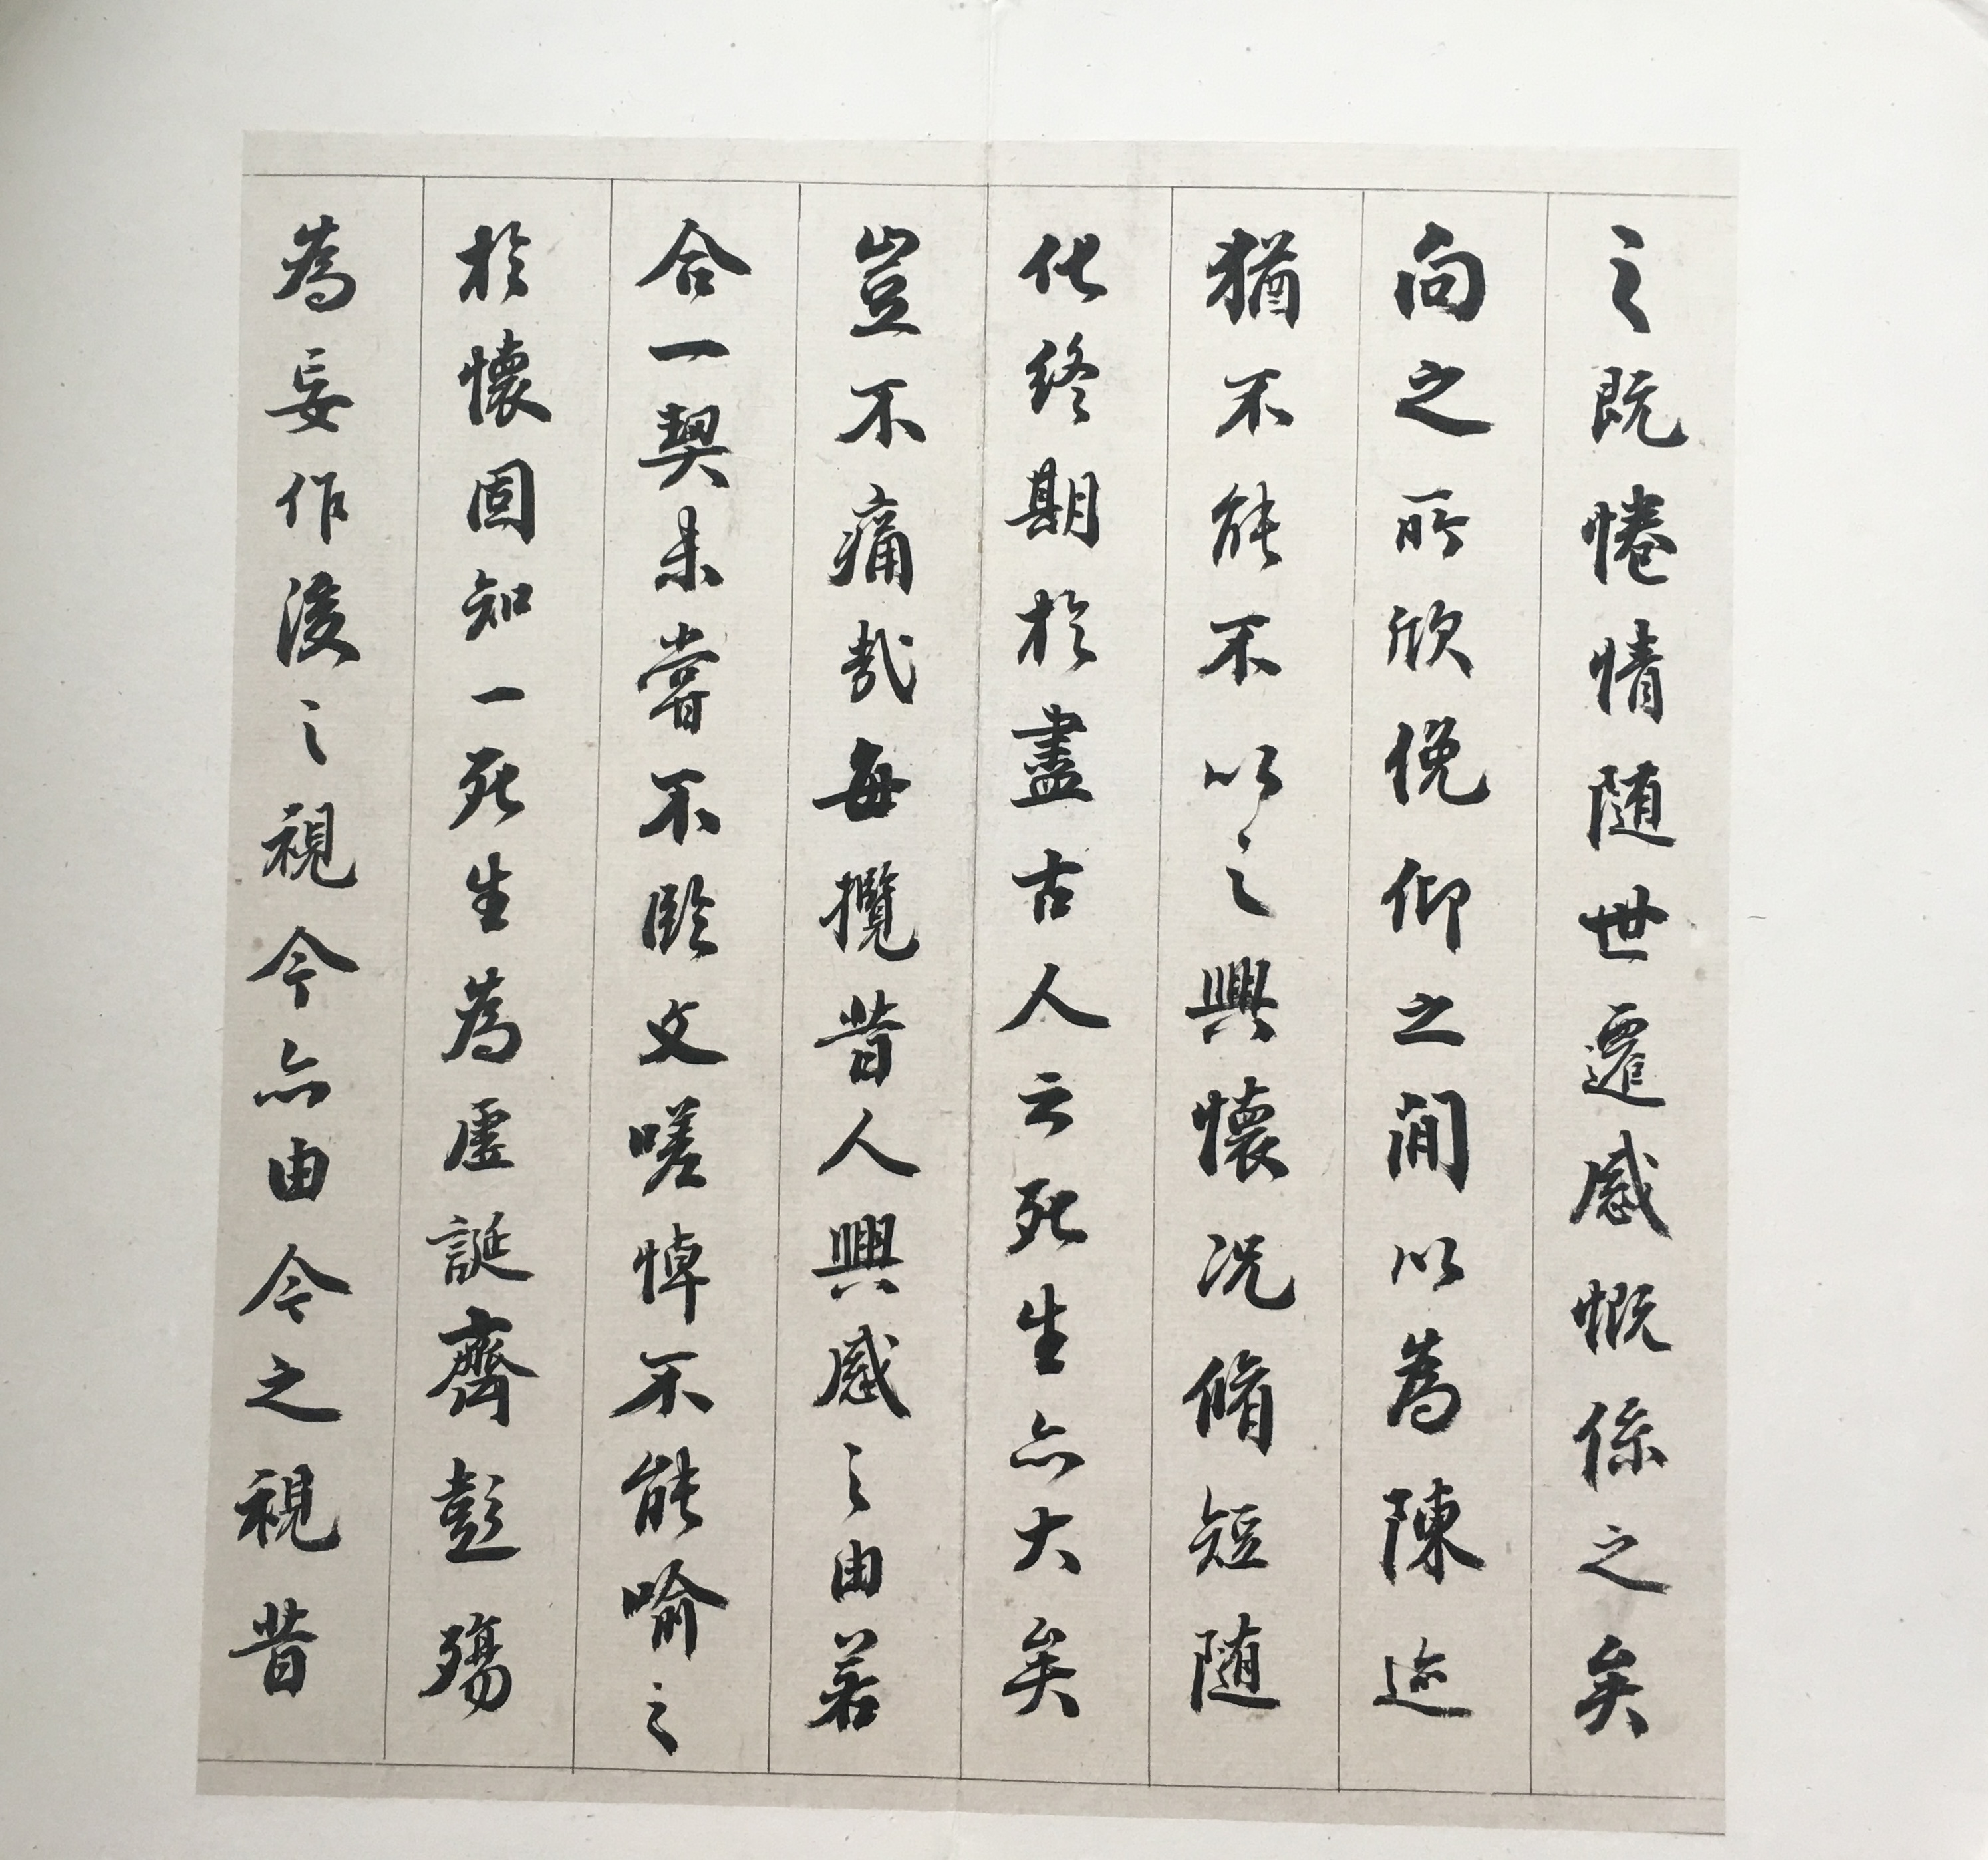 之既惓情随世遷感慨係之矣
向之所欣俛仰之間以為陳迹
猶不能不以之興懷况脩短随
化終期於盡古人云死生亦大矣
豈不痛哉每攬昔人興感之由若
合一契未嘗不臨文嗟悼不能喻之
於懷固知一死生為虛誕齊彭殤
為妄作後之視今亦由今之視昔